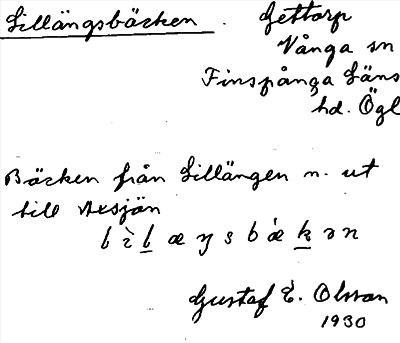 Lillängsbäcken. Gettorp
Vånga sn
Finspånga Läns
hd. Ögl
Bäcken från Lillängen n. ut
till Axsjön
Gustaf E. Olsson
1930